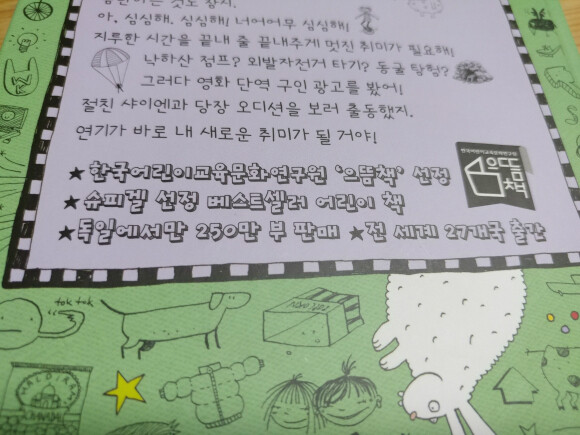 아, 심심해. 심심해! 너어어무 심심해!
지루한 시간을 끝내 줄 끝내주게 멋진 취미가 필요해!
낙하산 점프? 외발자전거 타기? 동굴 탐험?
그러다 영화 단역 구인 광고를 봤어!
절친 샤이엔과 당장 오디션을 보러 출동했지.
연기가 바로 내 새로운 취미가 될 거야!
★한국어린이교육문화연구원 '으뜸책' 선정
한국어린이교육문화연구원
으뜸책
★슈피겔 선정 베스트셀러 어린이 책
★독일에서만 250만 부 판매 ★전 세계 27개국 출간
tok tok